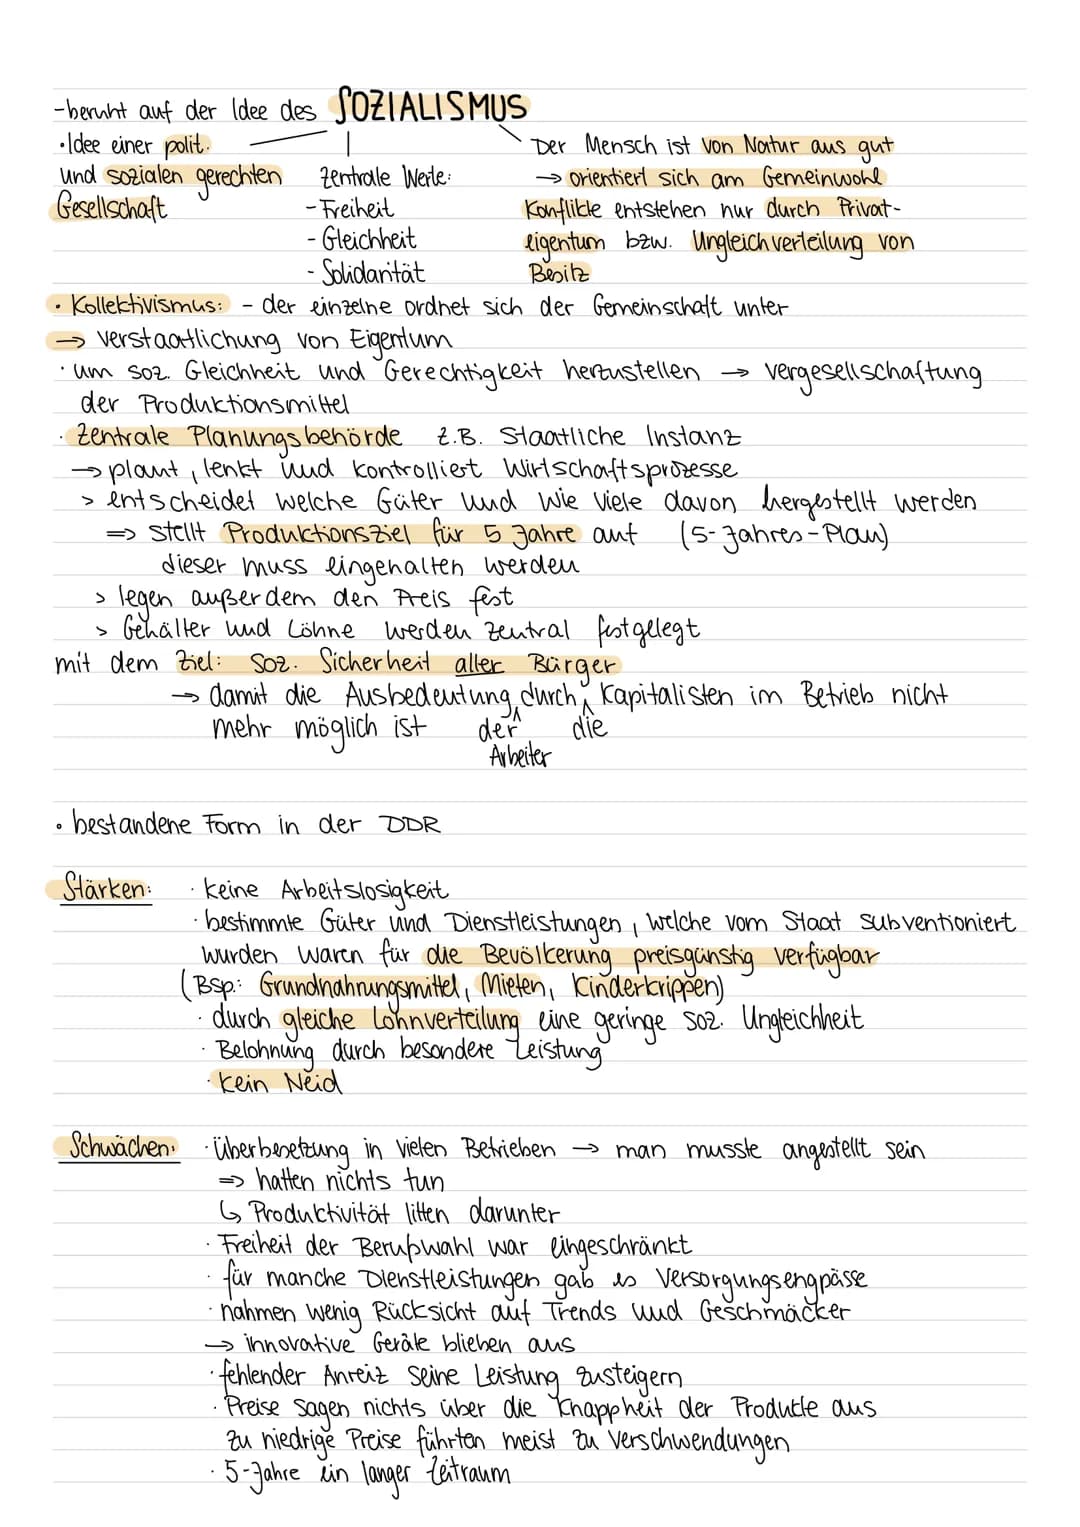 -beruht auf der Idee des SOZIALISMUS
•Idee einer polit.
und sozialen gerechten
Gesellschaft
Zentrale Werte:
- Freiheit
- Gleichheit
- Solidarität
Der Mensch ist von Natur aus gut
→ orientiert sich am Gemeinwohl
Konflikte entstehen nur durch Privat-
eigentum bzw. Ungleichverteilung von
Besitz
• Kollektivismus: - der einzelne ordnet sich der Gemeinschaft unter
→ verstaatlichung von Eigentum
• um soz. Gleichheit und Gerechtigkeit herzustellen → vergesellschaftung
der Produktionsmittel
• Zentrale Planungsbehörde z.B. Staatliche Instanz
→ plant, lenkt und kontrolliert Wirtschaftsprozesse
> entscheidet welche Güter und wie viele davon hergestellt werden
⇒ stellt Produktionsziel für 5 Jahre auf (5-Jahres-Plan)
dieser muss eingehalten werden
> legen außerdem den Preis fest
> Gehälter und Löhne werden zentral festgelegt
mit dem Ziel: soz. Sicherheit aller Bürger
→ damit die Ausbedeutung durch Kapitalisten im Betrieb nicht
mehr möglich ist der die
Arbeiter
• bestandene Form in der DDR
Stärken: · keine Arbeitslosigkeit
· bestimmte Güter und Dienstleistungen, welche vom Staat subventioniert
wurden waren für die Bevölkerung preisgünstig verfügbar
(Bsp.: Grundnahrungsmittel, Mieten, Kinderkrippen)
· durch gleiche Lohnverteilung eine geringe soz. Ungleichheit
· Belohnung durch besondere Leistung
· kein Neid
Schwächen: · Überbesetzung in vielen Betrieben → man musste angestellt sein
⇒ hatten nichts tun
↳ Produktivität litten darunter
· Freiheit der Berufswahl war eingeschränkt
· für manche Dienstleistungen gab es Versorgungsengpässe
· nahmen wenig Rücksicht auf Trends und Geschmäcker
→ innovative Geräte blieben aus
· fehlender Anreiz seine Leistung zusteigern
· Preise sagen nichts über die Knappheit der Produkte aus
zu niedrige Preise führten meist zu Verschwendungen
· 5-Jahre ein langer Zeitraum